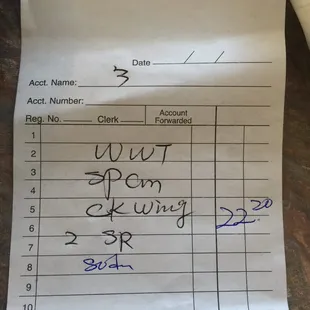 Date / /
Acct. Name: 3
Acct. Number:
Reg. No. Clerk Account Forwarded
1
2 WWT
3
4 SPCM
5 CK Wing
6 22.20
7 2 SR
8
9
10